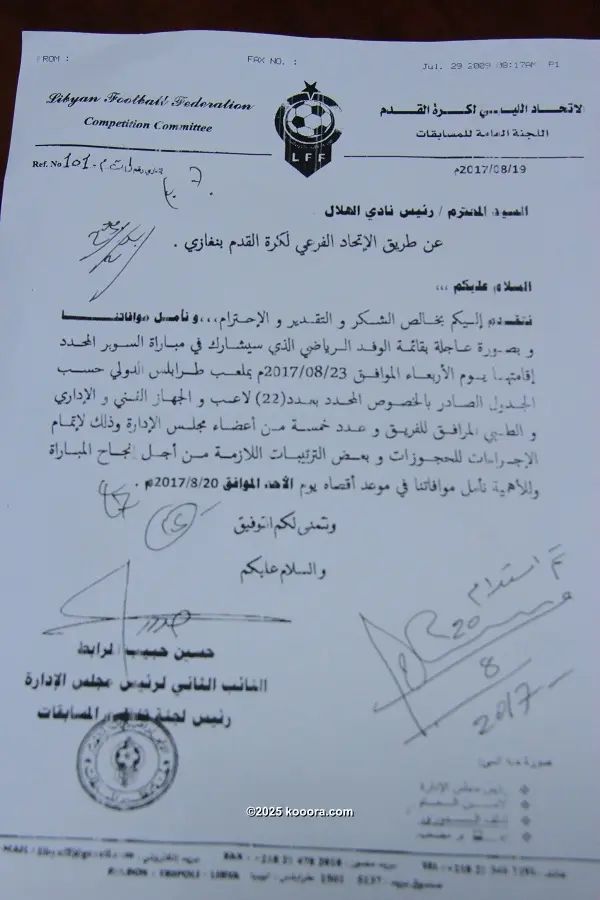 ROM :
FAX NO. :
Jul. 29 2009 08:17AM P1
Libyan Football Federation
Competition Committee
LFF
الاتحاد الليبي لكرة القدم
اللجنة العامة للمسابقات
Ref. No 101
2017/08/19م
السيد المحترم / رئيس نادي الهلال
عن طريق الإتحاد الفرعي لكرة القدم بنغازي .
السلام عليكم ,,,
نتقدم إليكم بخالص الشكر و التقدير و الإحترام،،،و نأمل موافاتنا
و بصورة عاجلة بقائمة الوفد الرياضي الذي سيشارك في مباراة السوبر المحدد
إقامتها يوم الأربعاء الموافق 2017/08/23م بملعب طرابلس الدولي حسب
الجدول الصادر بالخصوص المحدد بعدد(22) لاعب و الجهاز الفني و الإداري
و الطبي المرافق للفريق و عدد خمسة من أعضاء مجلس الإدارة وذلك لإتمام
الإجراءات للحجوزات و بعض الترتيبات اللازمة من أجل إنجاح المباراة
وللأهمية نأمل موافاتنا في موعد أقصاه يوم الأحد الموافق 2017/8/20م .
ونتمنى لكم التوفيق
والسلام عليكم
تم استلام
20
8
2017
حسين حبيب الرابط
النائب الثاني لرئيس مجلس الإدارة
رئيس لجنة المسابقات
صورة منه إلى:
رئيس مجلس الإدارة
©2025 kooora.com